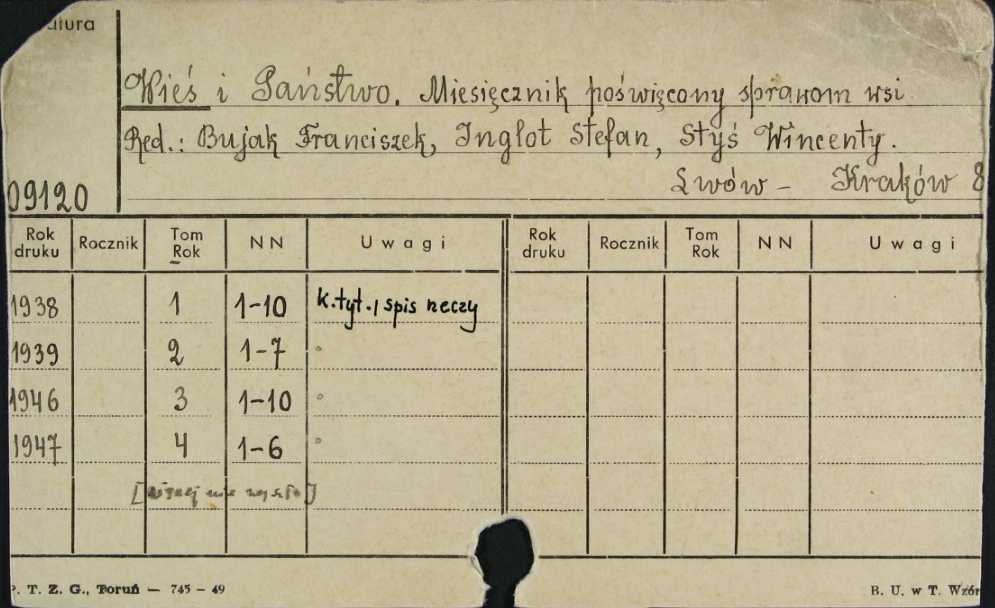 atura
Wieś i Państwo. Miesięcznik poświęcony sprawom wsi
Red.: Bujak Franciszek, Inglot Stefan, Styś Wincenty.
Lwów - Kraków 8
09120
Rok druku Rocznik Tom Rok NN Uwagi Rok druku Rocznik Tom Rok NN Uwagi
1938 1 1-10 k.tyt., spis rzeczy
1939 2 1-7 "
1946 3 1-10 "
1947 4 1-6 "
[więcej nie wyszło]
P. T. Z. G., Toruń — 745 - 49 B. U. w T. Wzór